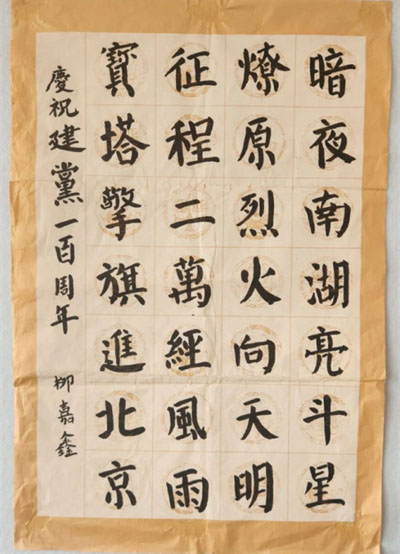 暗夜南湖亮斗星
燎原烈火向天明
征程二萬經風雨
寶塔擎旗進北京
慶祝建黨一百周年 柳嘉鑫